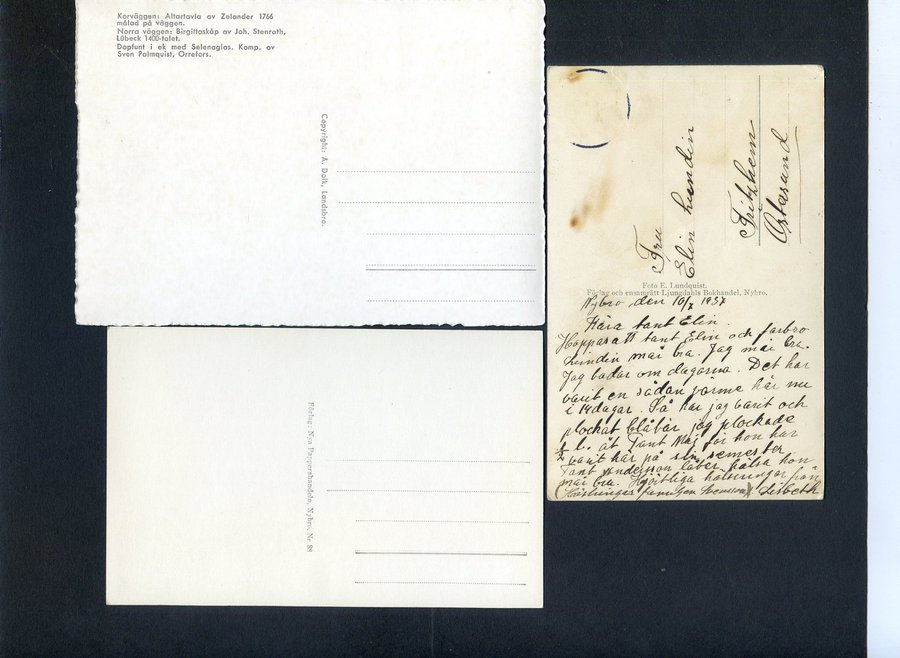 Korväggen: Altartavla av Zelander 1766
målad på väggen.
Norra väggen: Birgittaskåp av Joh. Stenrath,
Lübeck 1400-talet.
Dopfunt i ek med Selenaglas. Komp. av
Sven Palmquist, Orrefors.
Copyright: A. Dolk, Landsbro.
Förlag: Nya Pappershandeln, Nybro. Nr 88
Fru
Elin Lundin
Fritzhem
Foto E. Lundquist.
Förlag och ensamrätt Ljungdahls Bokhandel, Nybro.
Nybro den 10/7 1937
Kära tant Elin.
Hoppas att tant Elin och farbro
Lundin må bra. Jag mår bra.
Jag badar om dagarna. Det har
varit en sådan värme här nu
i 14 dagar. Så har jag varit och
plockat blåbär jag plockade
½ l. åt Tant Maj för hon har
varit här på sin semester
Tant Andersson låter hälsa hon
mår bra. Hjärtliga hälsningar från
Hälsningar familjen Lisbeth